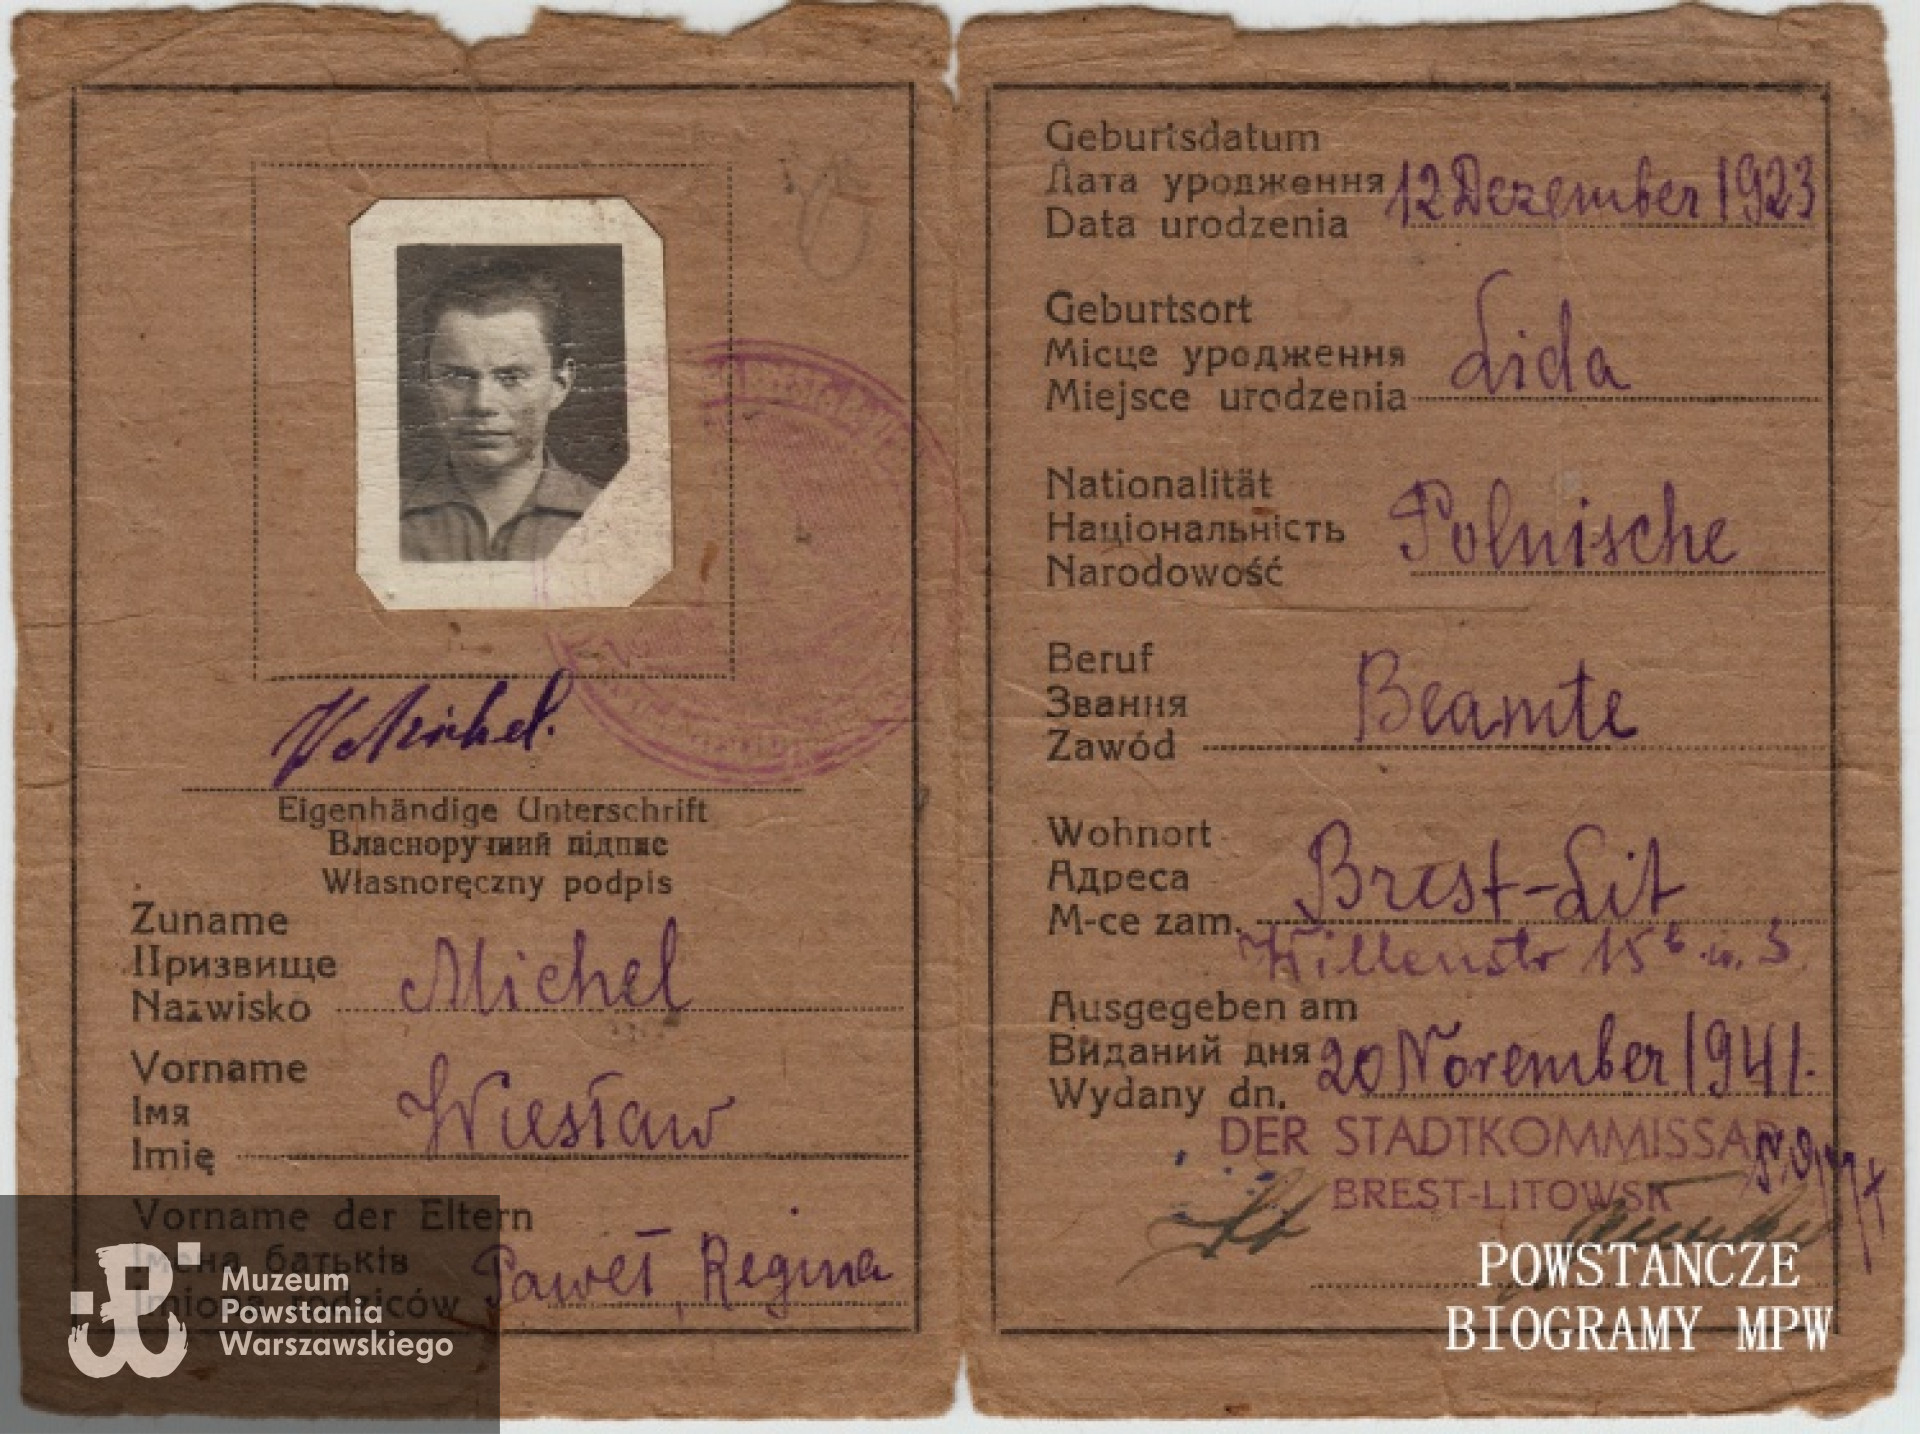 Michel.
Eigenhändige Unterschrift
Власноручний підпис
Własnoręczny podpis
Zuname
Призвище
Nazwisko
Michel
Vorname
Імя
Imię
Wiesław
Vorname der Eltern
Імена батьків
Imiona rodziców
Paweł, Regina
Muzeum
Powstania
Warszawskiego
Geburtsdatum
Дата уродження
Data urodzenia
12 Dezember 1923
Geburtsort
Місце уродження
Miejsce urodzenia
Lida
Nationalität
Національність
Narodowość
Polnische
Beruf
Звання
Zawód
Beamte
Wohnort
Адреса
M-ce zam.
Brest-Lit
15 b
Ausgegeben am
Виданий дня
Wydany dn.
20 November 1941.
DER STADTKOMMISSAR
BREST-LITOWSK
POWSTANCZE
BIOGRAMY MPW